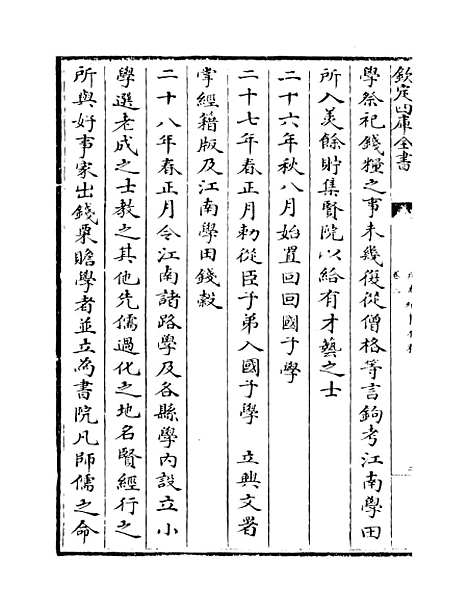 欽定四庫全書
學祭祀錢糧之事未幾復從僧格等言鉤考江南學田
所入羡餘貯集賢院以給有才藝之士
二十六年秋八月始置回回國子學
二十七年春正月勅從臣子弟入國子學　立興文署
掌經籍版及江南學田錢穀
二十八年春正月令江南諸路學及各縣學內設立小
學選老成之士教之其他先儒過化之地名賢經行之
所與好事家出錢粟贍學者並立為書院凡師儒之命